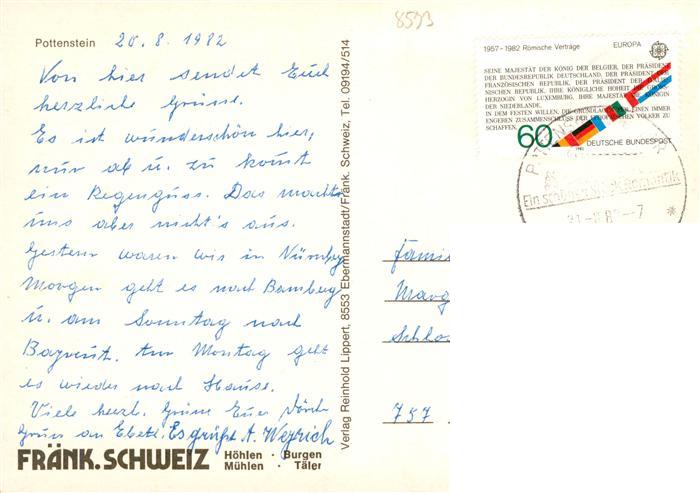 8593
Pottenstein 20.8.1982
Von hier sendet Euch
herzliche Grüsse.
Es ist wunderschön hier,
nur ab u. zu kommt
ein Regenguss. Das macht
uns aber nicht's aus.
Gestern waren wir in Nürnbg
Morgen geht es nach Bamberg
u. am Sonntag nach
Bayreut. Am Montag geht
es wieder nach Hause.
Viele herzl. Grüsse Euer
Gruss an Es grüßt A. Weyrich
FRÄNK. SCHWEIZ Höhlen · Burgen
Mühlen · Täler
Verlag Reinhold Lippert, 8553 Ebermannstadt/Fränk. Schweiz, Tel. 09194/514
1957-1982 Römische Verträge EUROPA
SEINE MAJESTÄT DER KÖNIG DER BELGIER, DER PRÄSIDENT
DER BUNDESREPUBLIK DEUTSCHLAND, DER PRÄSIDENT DER
FRANZÖSISCHEN REPUBLIK, DER PRÄSIDENT DER ITALIE-
NISCHEN REPUBLIK, IHRE KÖNIGLICHE HOHEIT DIE GROSS-
HERZOGIN VON LUXEMBURG, IHRE MAJESTÄT DIE KÖNIGIN
DER NIEDERLANDE,
IN DEM FESTEN WILLEN, DIE GRUNDLAGEN FÜR EINEN IMMER
ENGEREN ZUSAMMENSCHLUSS DER EUROPÄISCHEN VÖLKER ZU
SCHAFFEN,
60 DEUTSCHE BUNDESPOST
1982
Ein schönes Stück Romantik
Famil
Marg
Schlo
757